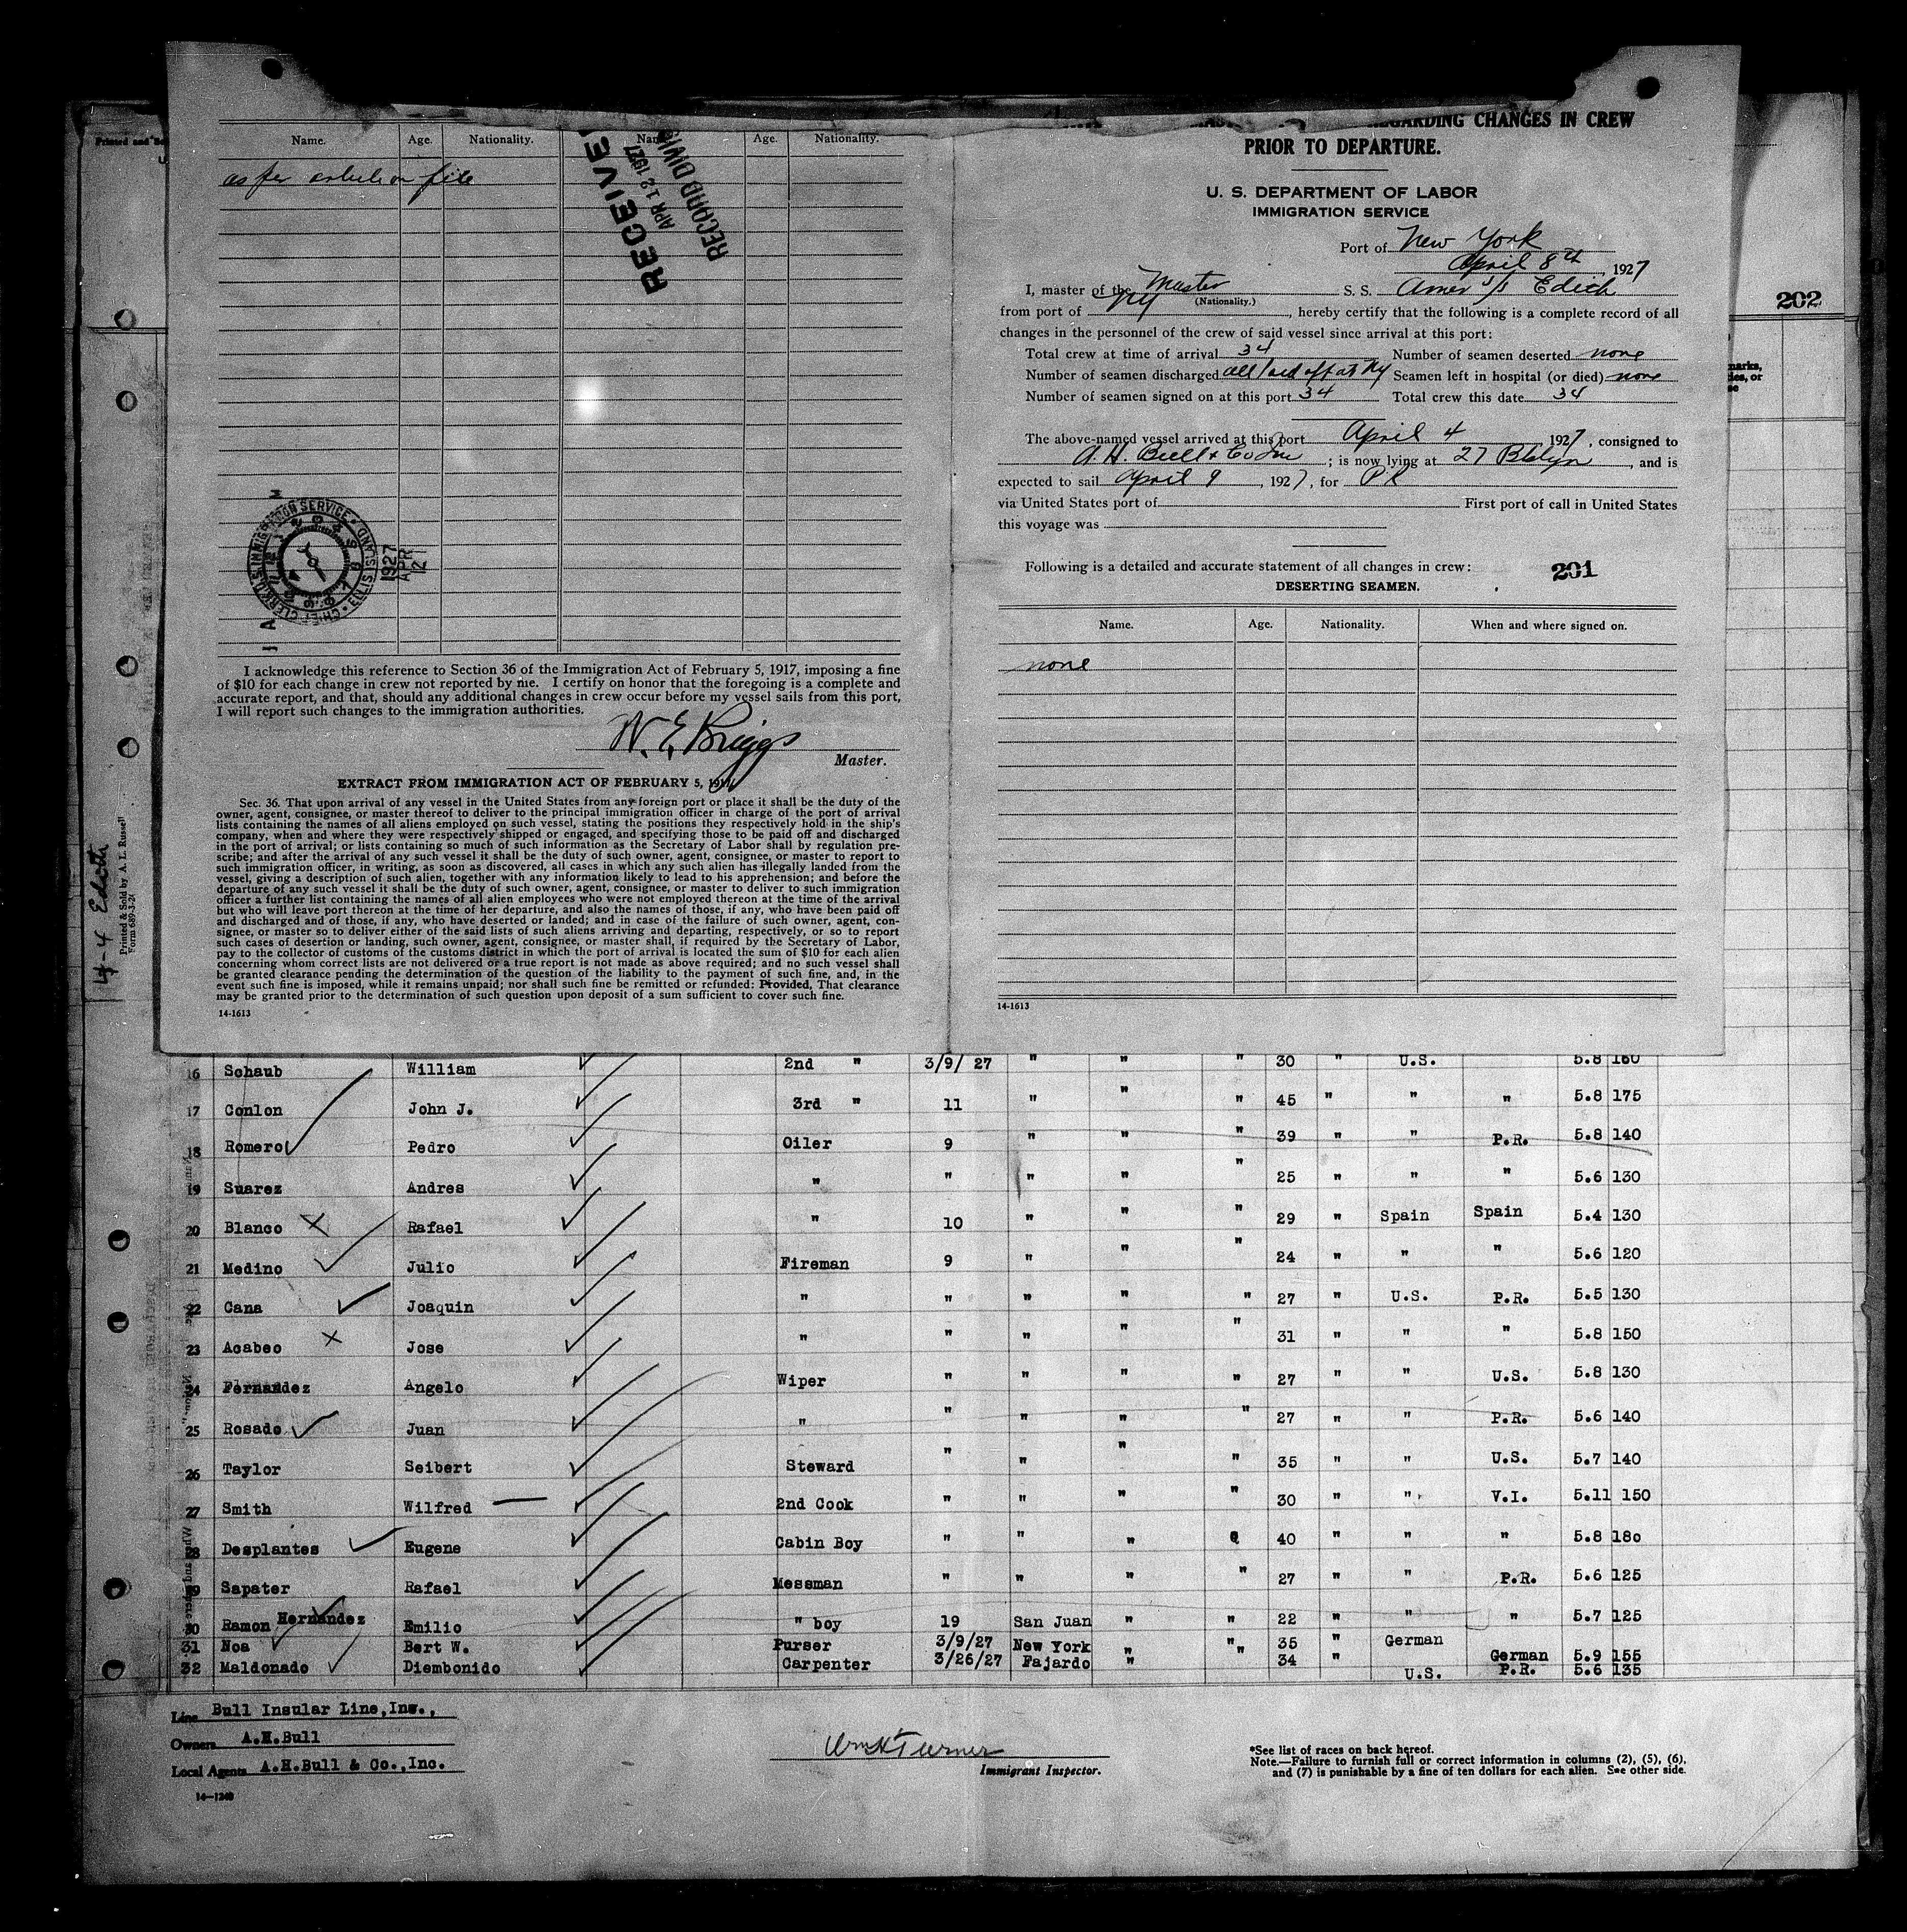 Printed and
202
Name. Age. Nationality. Name. Age. Nationality.
as per articles on file
RECEIVE
APR 12 1927
RECORD DIVI
CHIEF CLERK U.S. IMMIGRATION SERVICE ELLIS ISLAND
1927
APR
12
I acknowledge this reference to Section 36 of the Immigration Act of February 5, 1917, imposing a fine
of $10 for each change in crew not reported by me. I certify on honor that the foregoing is a complete and
accurate report, and that, should any additional changes in crew occur before my vessel sails from this port,
I will report such changes to the immigration authorities.
W. E. Briggs
Master.
EXTRACT FROM IMMIGRATION ACT OF FEBRUARY 5, 1917.
Sec. 36. That upon arrival of any vessel in the United States from any foreign port or place it shall be the duty of the
owner, agent, consignee, or master thereof to deliver to the principal immigration officer in charge of the port of arrival
lists containing the names of all aliens employed on such vessel, stating the positions they respectively hold in the ship's
company, when and where they were respectively shipped or engaged, and specifying those to be paid off and discharged
in the port of arrival; or lists containing so much of such information as the Secretary of Labor shall by regulation pre-
scribe; and after the arrival of any such vessel it shall be the duty of such owner, agent, consignee, or master to report to
such immigration officer, in writing, as soon as discovered, all cases in which any such alien has illegally landed from the
vessel, giving a description of such alien, together with any information likely to lead to his apprehension; and before the
departure of any such vessel it shall be the duty of such owner, agent, consignee, or master to deliver to such immigration
officer a further list containing the names of all alien employees who were not employed thereon at the time of the arrival
but who will leave port thereon at the time of her departure, and also the names of those, if any, who have been paid off
and discharged and of those, if any, who have deserted or landed; and in case of the failure of such owner, agent, con-
signee, or master so to deliver either of the said lists of such aliens arriving and departing, respectively, or so to report
such cases of desertion or landing, such owner, agent, consignee, or master shall, if required by the Secretary of Labor,
pay to the collector of customs of the customs district in which the port of arrival is located the sum of $10 for each alien
concerning whom correct lists are not delivered or a true report is not made as above required; and no such vessel shall
be granted clearance pending the determination of the question of the liability to the payment of such fine, and, in the
event such fine is imposed, while it remains unpaid; nor shall such fine be remitted or refunded: Provided, That clearance
may be granted prior to the determination of such question upon deposit of a sum sufficient to cover such fine.
14-1613
REGARDING CHANGES IN CREW
PRIOR TO DEPARTURE.
U. S. DEPARTMENT OF LABOR
IMMIGRATION SERVICE
Port of New York
April 8th, 1927
I, master of the Master S. S. Amer s/s Edith
(Nationality.)
from port of NY, hereby certify that the following is a complete record of all
changes in the personnel of the crew of said vessel since arrival at this port:
Total crew at time of arrival 34 Number of seamen deserted none
Number of seamen discharged all paid off at NY Seamen left in hospital (or died) none
Number of seamen signed on at this port 34 Total crew this date 34
The above-named vessel arrived at this port April 4 1927, consigned to
A. H. Bull & Co Inc; is now lying at 27 Bklyn, and is
expected to sail April 9, 1927, for PR
via United States port of First port of call in United States
this voyage was
Following is a detailed and accurate statement of all changes in crew:
201
DESERTING SEAMEN.
Name. Age. Nationality. When and where signed on.
none
14-1613
4-4 Edith
Printed & Sold by A. L. Russell
Form 689-3-26
16 Schaub William 2nd " 3/9/ 27 " " " 30 " U.S. 5.8 160
17 Conlon John J. 3rd " 11 " " " 45 " " " 5.8 175
18 Romero Pedro Oiler 9 " " " 39 " " P.R. 5.8 140
19 Suarez Andres " " " " " 25 " " " 5.6 130
20 Blanco Rafael " 10 " " " 29 " Spain Spain 5.4 130
21 Medino Julio Fireman 9 " " " 24 " " " 5.6 120
22 Cana Joaquin " " " " " 27 " U.S. P.R. 5.5 130
23 Acabeo Jose " " " " " 31 " " " 5.8 150
24 Fernandez Angelo Wiper " " " " 27 " " U.S. 5.8 130
25 Rosado Juan " " " " " 27 " " P.R. 5.6 140
26 Taylor Seibert Steward " " " " 35 " " U.S. 5.7 140
27 Smith Wilfred 2nd Cook " " " " 30 " " V.I. 5.11 150
28 Desplantes Eugene Cabin Boy " " " 40 " " " 5.8 180
29 Sapater Rafael Messman " " " " 27 " " P.R. 5.6 125
30 Ramon Hernandez Emilio " boy 19 San Juan " " 22 " " " 5.7 125
31 Noa Bert W. Purser 3/9/27 New York " " 35 " German German 5.9 155
32 Maldonado Diembonido Carpenter 3/26/27 Fajardo " " 34 " U.S. P.R. 5.6 135
Line Bull Insular Line, Inc.,
Owners A.H.Bull
Local Agents A.H.Bull & Co., Inc.
14-1240
Wm H Turner
Immigrant Inspector.
*See list of races on back hereof.
Note.—Failure to furnish full or correct information in columns (2), (5), (6),
and (7) is punishable by a fine of ten dollars for each alien. See other side.